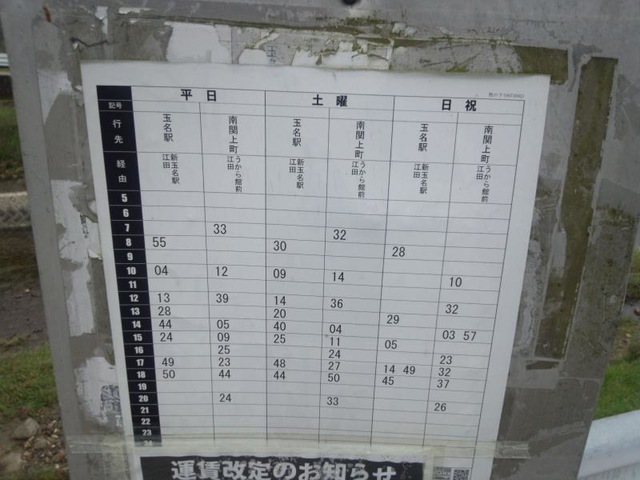 平日 土曜 日祝
記号
行先 玉名駅 南関上町 玉名駅 南関上町 玉名駅 南関上町
経由 新玉名駅 江田 うから館前 江田 新玉名駅 江田 うから館前 江田 新玉名駅 江田 うから館前 江田
5
6
7 33 32
8 55 30 28
9
10 04 12 09 14 10
11
12 13 39 14 36 32
13 28 20 29
14 44 05 40 04 03 57
15 24 09 25 11 05
16 25 24 23
17 49 23 48 27 14 49 32
18 50 44 44 50 45 37
19
20 24 33 26
21
22
23
運賃改定のお知らせ